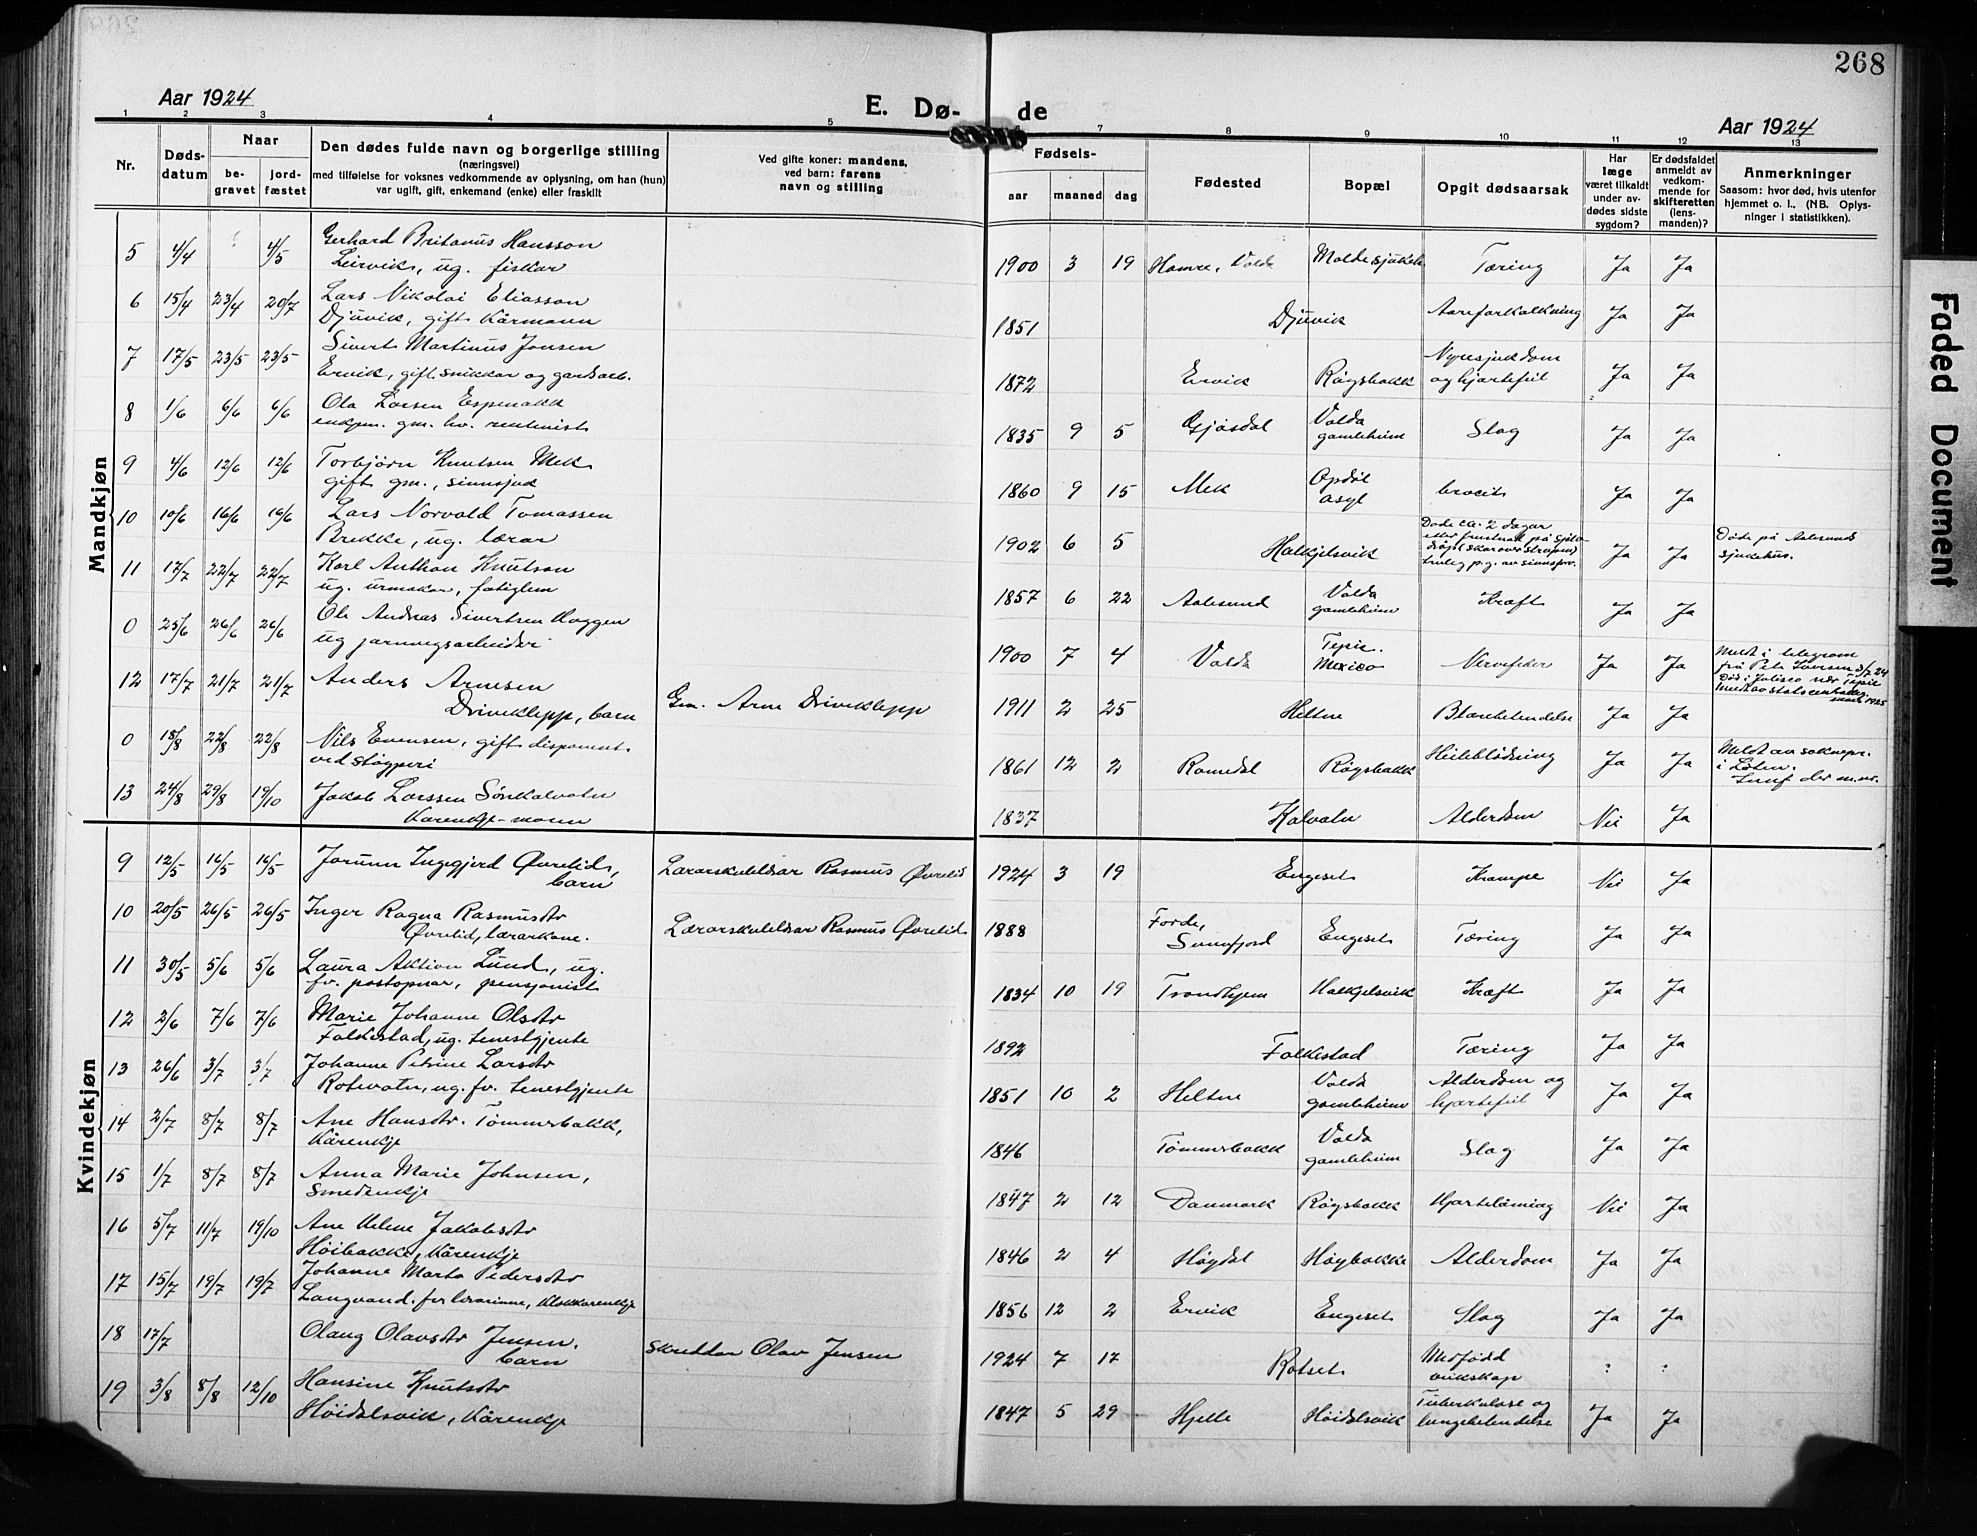 268
Aar 1924
E. Dø-
de
Aar 1924
1 2 3 4 5 7 8 9 10 11 12 13
Nr.
Døds-
datum
Naar
be-
gravet
jord-
fæstet
Den dødes fulde navn og borgerlige stilling
(næringsvei)
med tilføielse for voksnes vedkommende av oplysning, om han (hun)
var ugift, gift, enkemand (enke) eller fraskilt
Ved gifte koner: mandens,
ved barn: farens
navn og stilling
Fødsels-
aar maaned dag
Fødested
Bopæl
Opgit dødsaarsak
Har
læge
været tilkaldt
under av-
dødes sidste
sygdom?
Er dødsfaldet
anmeldt av
vedkom-
mende for
skifteretten
(lens-
manden)?
Anmerkninger
Saasom: hvor død, hvis utenfor
hjemmet o. l., (NB. Oplys-
ninger i statistikken).
Mandkjøn
5 4/4 ? 4/5 Gerhard Britanus Hansson
Leirvik, ug. fiskar
1900 3 19 Hamre, Volda Molde sjukeh. Tæring Ja Ja
6 15/4 23/4 20/7 Lars Nikolai Eliasson
Djuvik, gift Kårmann
1851 Djuvik Aareforkalkning Ja Ja
7 17/5 23/5 23/5 Sivert Martinus Jonsen
Ervik, gift snikkar og gardsarb.
1872 Ervik Røysbakk Nyresjukdom
og hjartefeil Ja Ja
8 1/6 6/6 6/6 Ola Larsen Espenakk
enkjem. gm. hv. rentenist
1835 9 5 Gjøsdal Volda
gamleheim Slag Ja Ja
9 4/6 12/6 12/6 Torbjørn Knutsen Mek
gift gm., sinnsjuk
1860 9 15 Mek Opdøl
asyl Ja Ja
10 10/6 16/6 16/6 Lars Norvald Tomassen
Brekke, ug. lærar
1902 6 5 Halkjelsvik Døde ca. 2 dagar
etter
Ja Ja Døde på Aalesunds
sjukehus.
11 17/7 22/7 22/7 Karl Anthon Knutson
ug. urmakar, fatiglem
1857 6 22 Aalesund Volda
gamleheim Kræft Ja Ja
0 25/6 26/6 26/6 Ole Andreas Sivertsen
ug jarnvegsarbeider
1900 7 4 Volda Tepic.
Mexico Nervefeber Ja Ja Meldt i telegram
frå
12 17/7 21/7 21/7 Anders Arnesen
Driveklepp, barn
Gm. Arne Driveklepp
1911 2 25 Heltne Blærebetendelse Ja Ja
0 18/8 22/8 22/8 Nils Evensen, gift disponent
ved støyperi
1861 12 2 Romedal Røysbakk Heileblødning Ja Ja Meldt av soknepr.
i Løten.
13 24/8 29/8 19/10 Jakob Larssen Sørekalvatn
Kårenkje-mann
1837 Kalvatn Alderdom Nei Ja
Kvindekjøn
9 12/5 16/5 16/5 Jorunn Ingegjerd Øvrelid,
barn
Lærarskuleldsar Rasmus Øvrelid
1924 3 19 Engeset Krampe Nei Ja
10 20/5 26/5 26/5 Inger Ragna Rasmusdtr
Øvrelid, lærarkone.
Lærarskuleldsar Rasmus Øvrelid
1888 Førde,
Sunnfjord Engeset Tæring Ja Ja
11 30/5 5/6 5/6 Laura Aktion Lund, ug.
fv. postopnar, pensjonist
1834 10 19 Trondhjem Halkjelsvik Kræft Ja Ja
12 2/6 7/6 7/6 Marie Johanne Olsdtr
Folkestad, ug. tenestgjente
1892 Folkestad Tæring Ja Ja
13 26/6 3/7 3/7 Johanne Petrine Larsdtr
Rotevatn, ug. fv. tenestgjente
1851 10 2 Heltne Volda
gamleheim Alderdom og
hjartefeil Ja Ja
14 2/7 8/7 8/7 Ane Hansdtr. Tømmerbakk,
Kårenkje
1846 Tømmerbakk Volda
gamleheim Slag Ja Ja
15 1/7 8/7 8/7 Anna Marie Johnsen,
Smedenkje
1847 2 12 Danmark Røysbakk Hjartelåming Nei Ja
16 5/7 11/7 19/10 Ane Helene Jakobsdtr
Høibakke, Kårenkje
1846 2 4 Høydal Høybakke Alderdom Ja Ja
17 15/7 19/7 19/7 Johanne Marta Pedersdtr
Langvand. fvr lærarinne, Klokkarenkje
1856 12 2 Ervik Engeset Slag Ja Ja
18 17/7 Olaug Olavsdtr Jensen.
barn
Skreddar Olav Jensen
1924 7 17 Rotset Medfødd
veikskap ? ?
19 3/8 8/8 12/10 Hansine Knutsdtr
Høidalsvik, Kårenkje
1847 5 29 Hjelle Høidalsvik Tuberkulose og
lungebetendelse Ja Ja
Faded Document